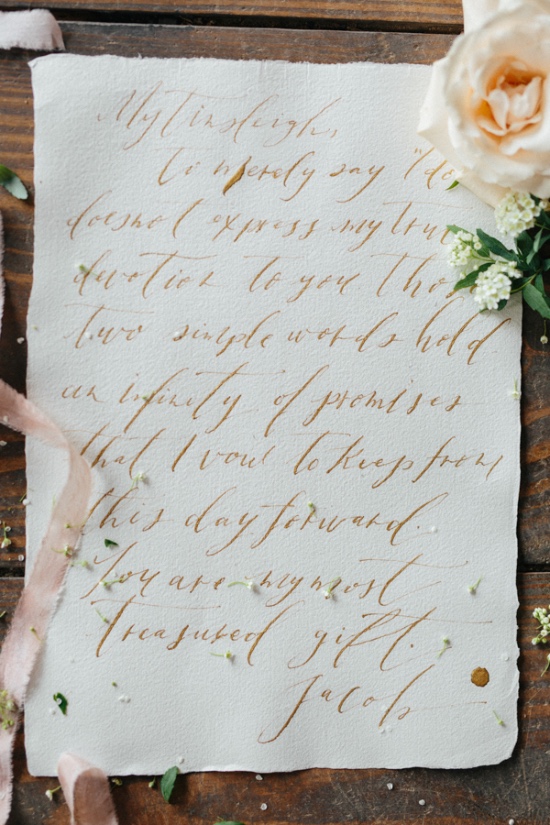 My Tinsleigh,
to merely say "I do
does not express my true
devotion to you. Those
two simple words hold
an infinity of promises
that I vow to keep from
this day forward.
You are my most
treasured gift.
Jacob